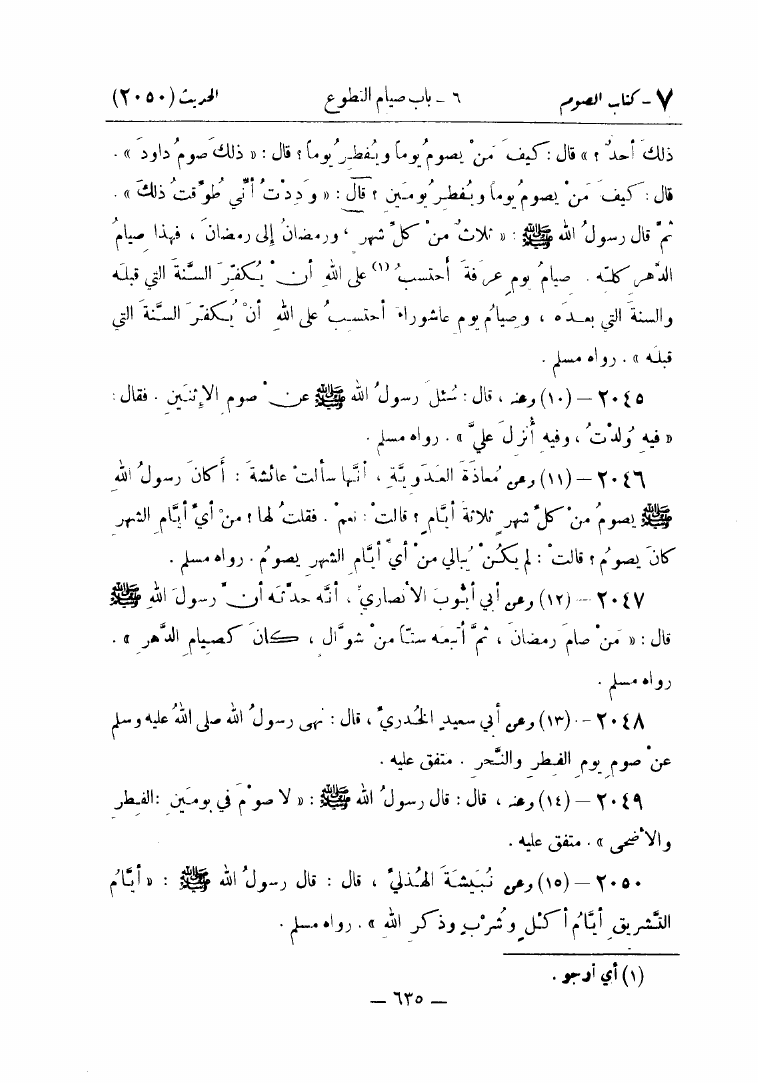 ٧ - كتاب الصوم ٦ - باب صيام التطوع الحديث (٢٠٥٠)
ذلكَ أحدٌ؟» قال: كيفَ مَنْ يصومُ يوماً ويُفطِرُ يوماً؟ قال: «ذلكَ صومُ داودَ».
قال: كيفَ مَنْ يصومُ يوماً ويُفطِرُ يومَينِ؟ قالَ: «وَدِدْتُ أنِّي طُوِّقتُ ذلكَ».
ثمَّ قال رسولُ الله ﷺ: «ثلاثٌ منْ كلِّ شهرٍ، ورمضانُ إلى رمضانَ، فهذا صِيامُ
الدَّهرِ كلِّه. صيامُ يومِ عرَفةَ أحتسبُ (١) على اللهِ أنْ يُكفِّرَ السَّنةَ التي قبلَه
والسنةَ التي بعدَه، وصيامُ يومِ عاشوراءَ أحتسِبُ على اللهِ أنْ يُكفِّرَ السَّنةَ التي
قبلَه». رواه مسلم.
٢٠٤٥ - (١٠) وعنه، قال: سُئلَ رسولُ الله ﷺ عنْ صومِ الإثنَينِ. فقال:
«فيهِ وُلدْتُ، وفيهِ أُنزِلَ عليَّ». رواه مسلم.
٢٠٤٦ - (١١) وعن مُعاذَةَ العَدَويَّةِ، أنَّها سألتْ عائشةَ: أكانَ رسولُ اللهِ
ﷺ يصومُ منْ كلِّ شهرٍ ثلاثةَ أيَّامٍ؟ قالتْ: نعمْ. فقلتُ لها: منْ أيِّ أيَّامِ الشهرِ
كانَ يصومُ؟ قالتْ: لم يكُنْ يُبالي منْ أيِّ أيَّامِ الشهرِ يصومُ. رواه مسلم.
٢٠٤٧ - (١٢) وعن أبي أيُّوبَ الأنصاريِّ، أنَّه حدَّثَه أنَّ رسولَ اللهِ ﷺ
قال: «مَنْ صامَ رمضانَ، ثمَّ أتبعَه ستّاً منْ شوَّالٍ، كانَ كصيامِ الدَّهرِ».
رواه مسلم.
٢٠٤٨ - (١٣) وعن أبي سعيدٍ الخُدريِّ، قال: نهى رسولُ الله صلى اللهُ عليه وسلم
عنْ صومِ يومِ الفِطرِ والنَّحرِ. متفق عليه.
٢٠٤٩ - (١٤) وعنه، قال: قال رسولُ الله ﷺ: «لا صَوْمَ في يومَينِ: الفِطرِ
والأضحى». متفق عليه.
٢٠٥٠ - (١٥) وعن نُبَيشَةَ الهُذليِّ، قال: قال رسولُ الله ﷺ: «أيَّامُ
التَّشريقِ أيَّامُ أكْلٍ وشُرْبٍ وذكرِ اللهِ». رواه مسلم.
(١) أي أرجو.
— ٦٣٥ —